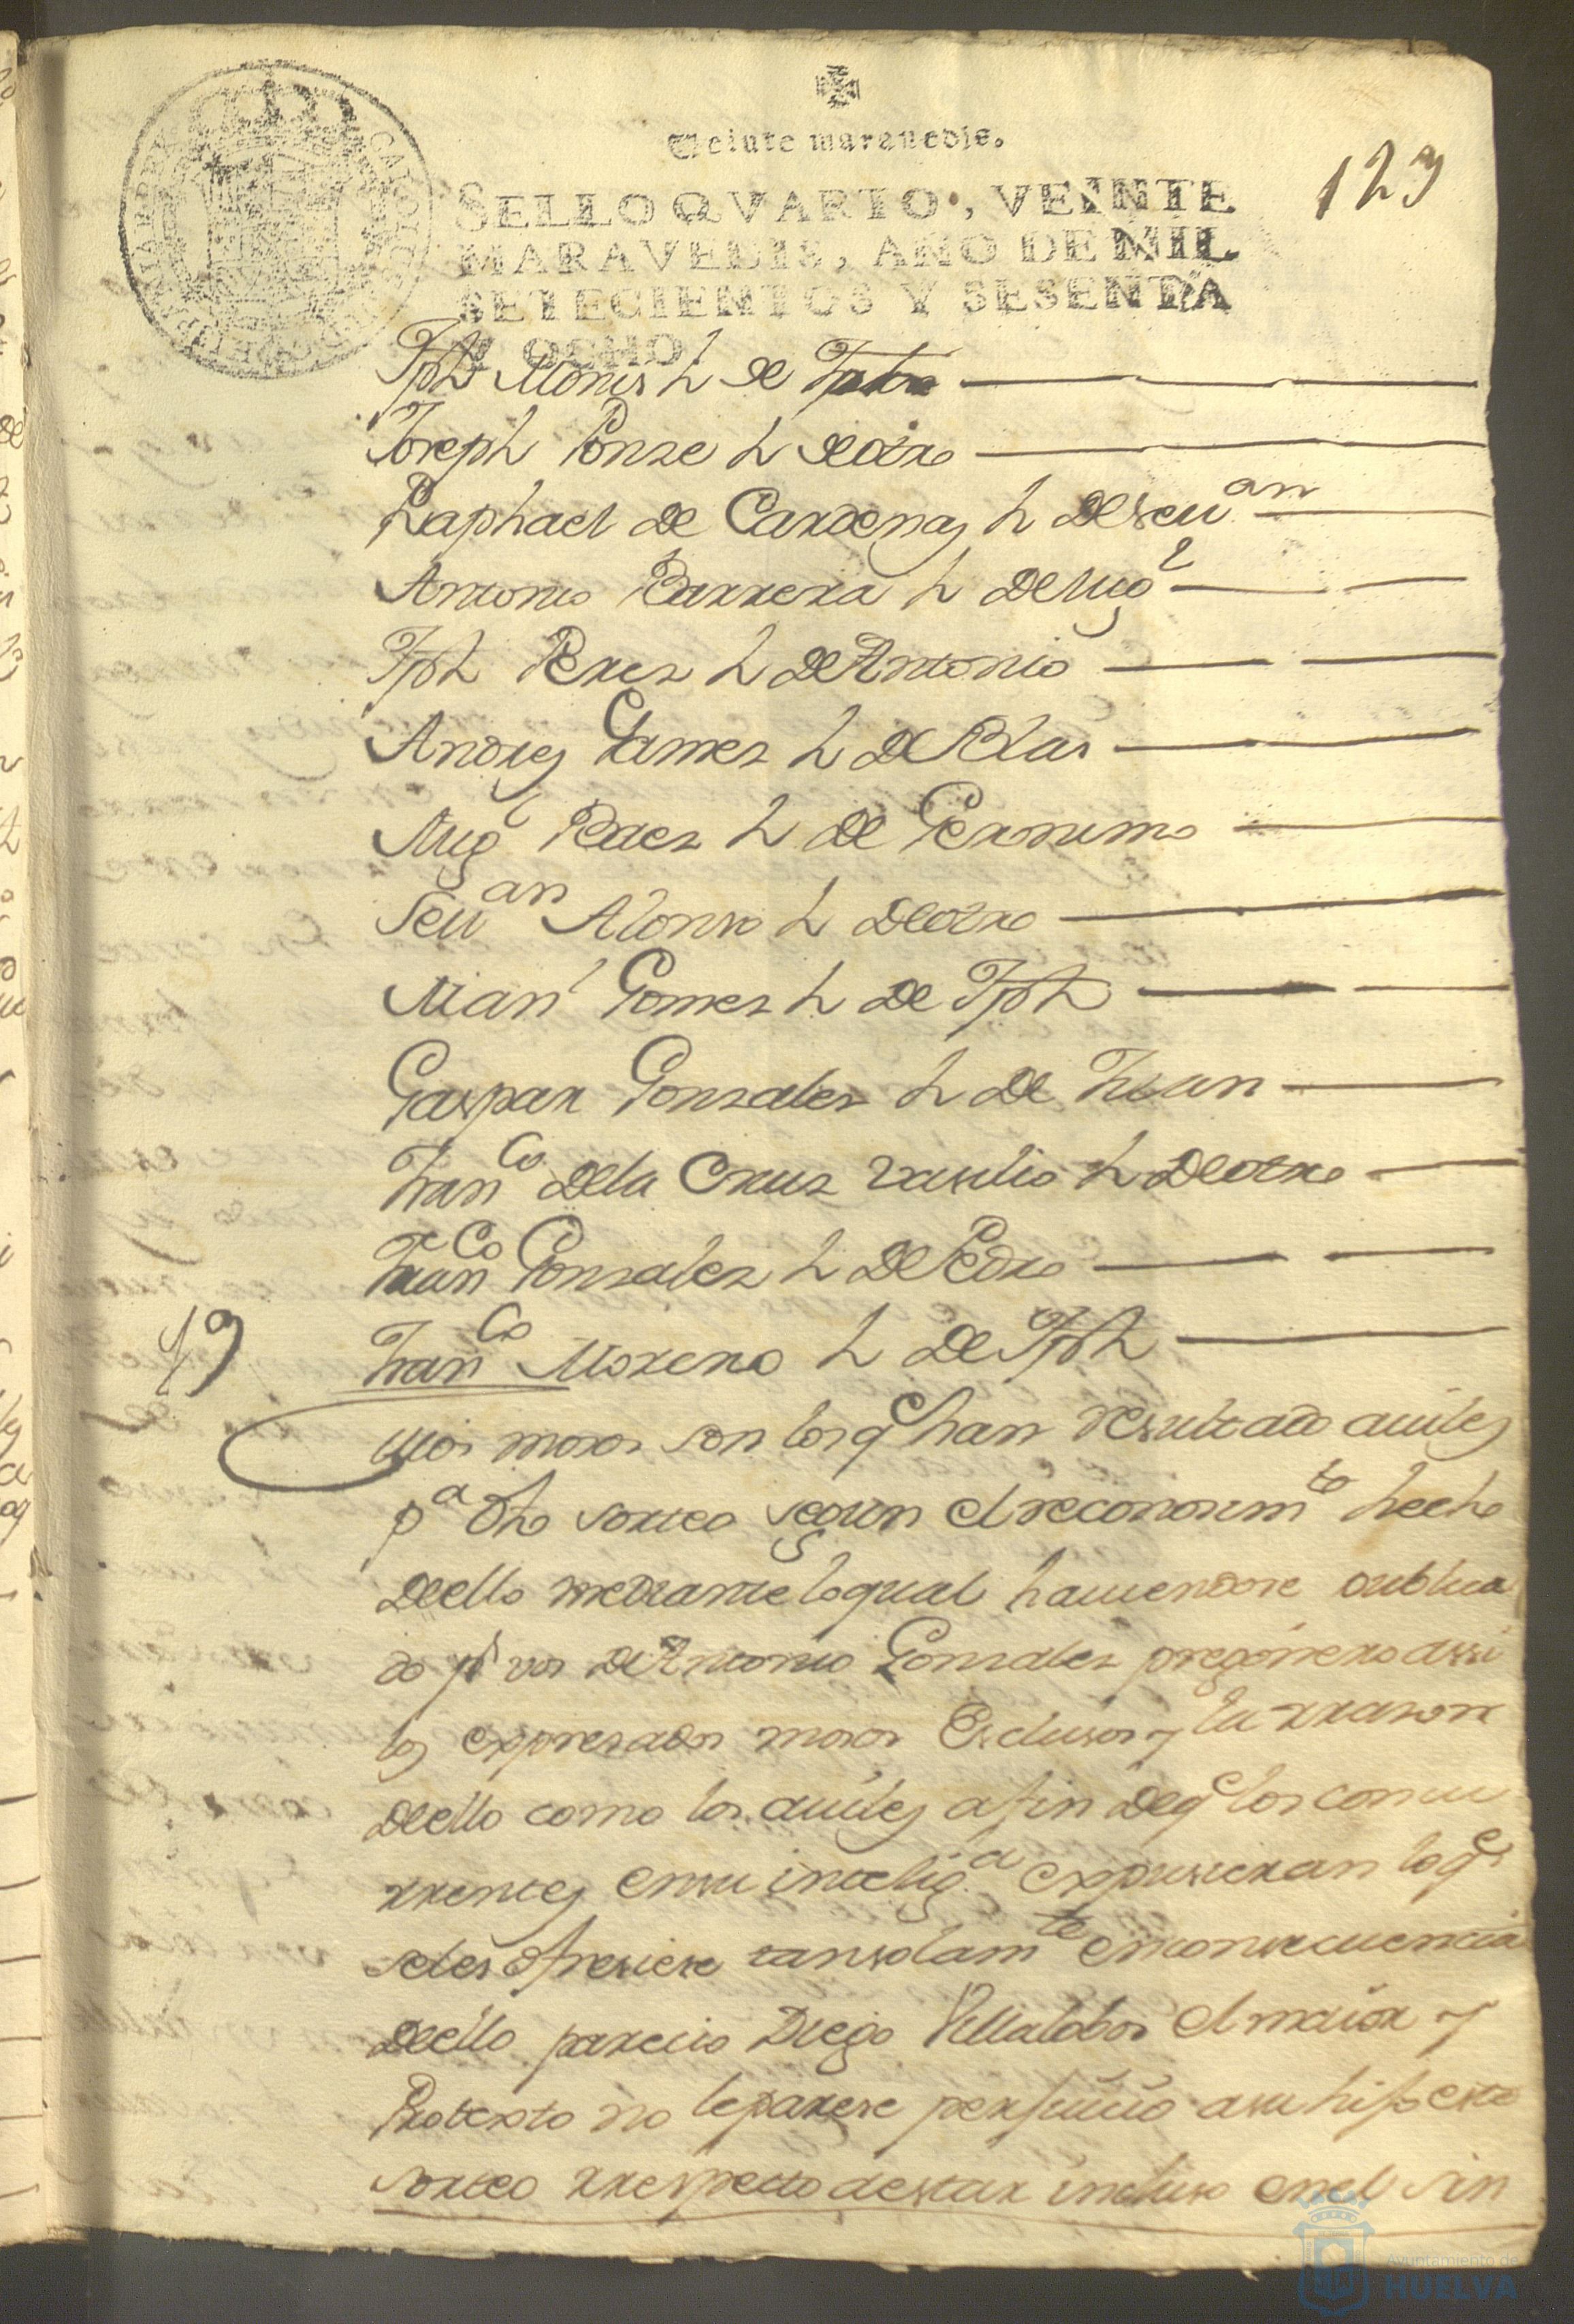 Veinte maravedis.
SELLO QVARTO, VEINTE
MARAVEDIS, AÑO DE MIL
SETECIENTOS Y SESENTA
Y OCHO
123
Jph Monis h de
Joseph Ponze h de otro
Raphael de Cardenas h de Seuan
Antonio Barrera h de Migl
Jph Perez h de Antonio
Andres Gamez h de Blas
Migl Perez h de Geronimo
Seuan Alonso h de otro
Manl Gomez h de Jph
Gaspar Gonzalez h de Juan
Franco de la Cruz vasilio h de otro
Franco Gonzalez h de Pedro
19
Franco Moreno h de Jph
mosos son los qe han resultado auiles
pa dho sorteo segun el reconosimto hecho
de ello mediante lo qual hauiendose publica
do pr vos de Antonio Gonzalez pregonero assi
los expresados mosos Esclusos y la rrason
de ello como los auiles a fin de qe los concu
rrentes en su inteliga expusieran lo qe
se les ofresiese tan solamte en consecuencia
de ello parecio Diego Villalobos el maior y
Protexto no le parese perjuicio a su hijo este
sorteo rrespecto de estar incluso en el sin
Ayuntamiento de
HUELVA